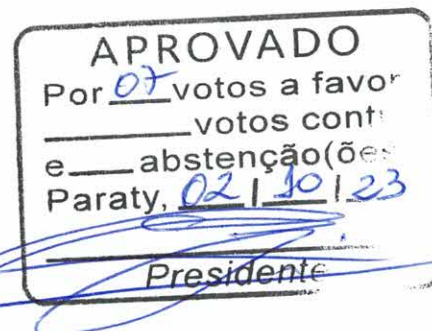 APROVADO
Por 07 votos a favor
______votos cont
e___abstenção(ões
Paraty, 02 | 10 | 23
Presidente